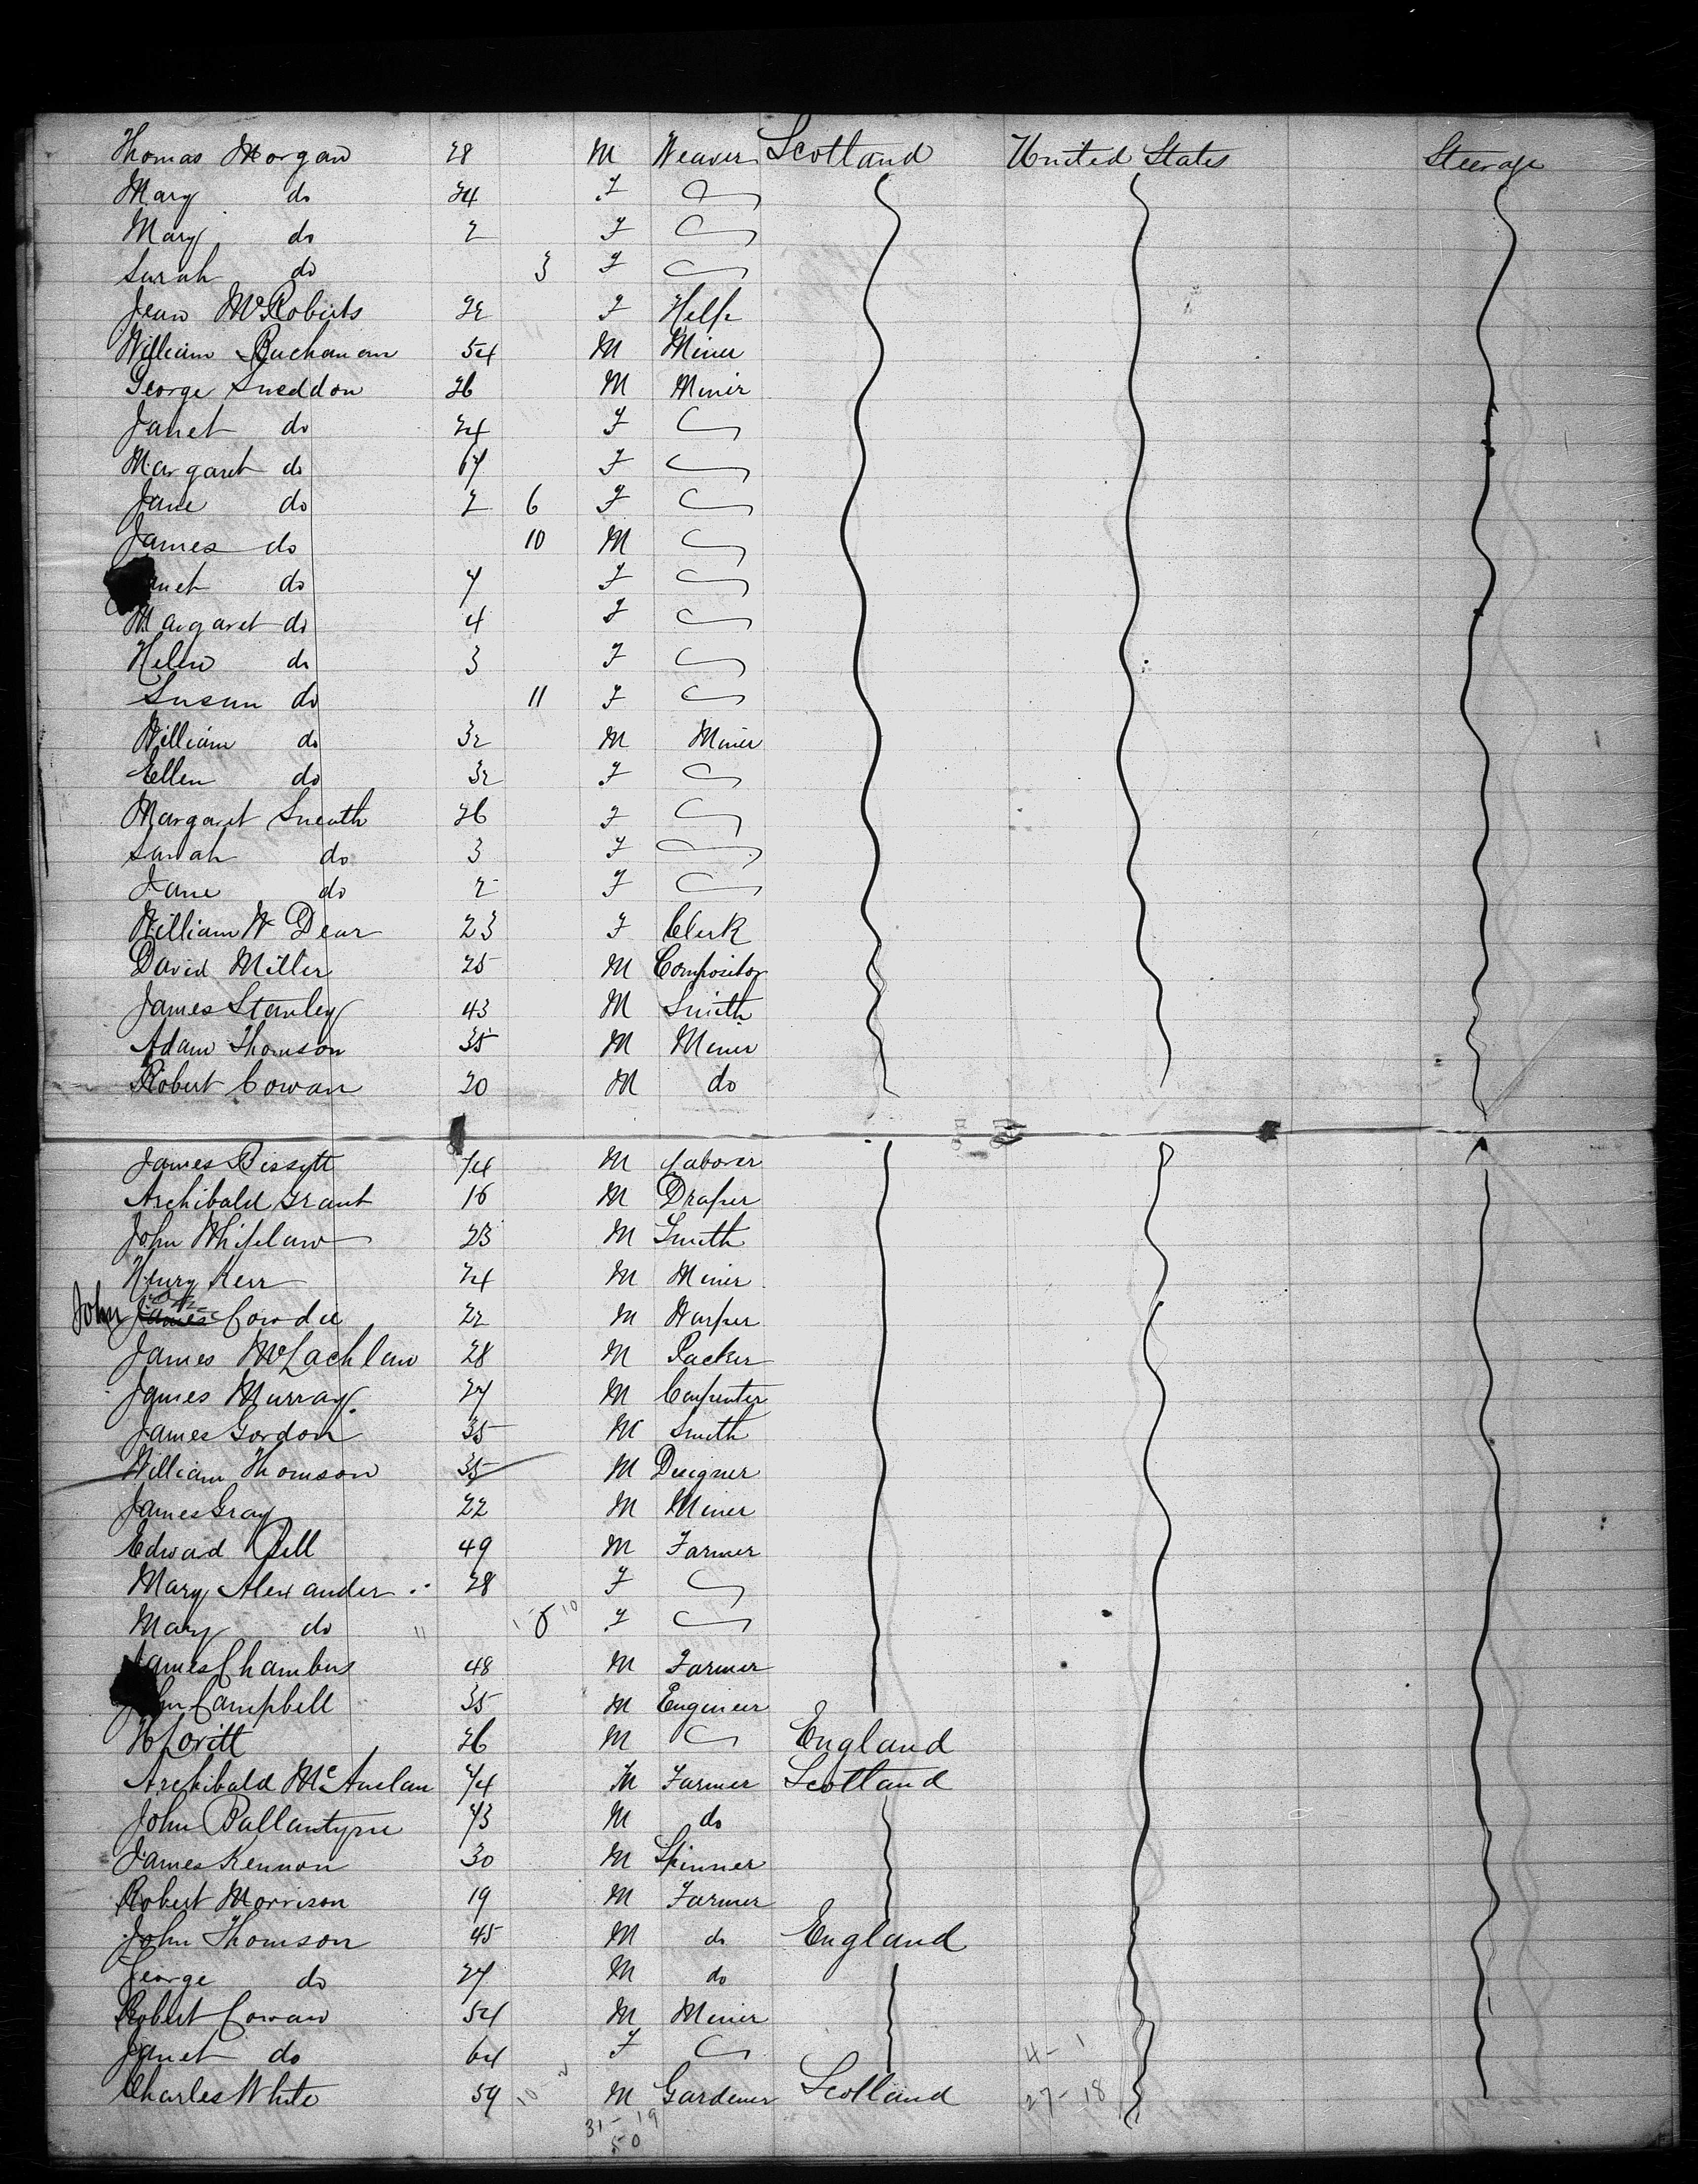 Thomas Morgan 28 M Weaver Scotland United States Steerage
Mary do 24 F
Mary do 2 F
Sarah do 3 F
Jean McRoberts 22 F Help
William Buchanan 54 M Miner
George Sneddon 26 M Miner
Janet do 24 F
Margaret do F
Jane do 2 6 F
James do 10 M
do 7 F
Margaret do 4 F
Helen do 3 F
Susan do 11 F
William do 32 M Miner
Ellen do 32 F
Margaret Sneath 26 F
Sarah do 3 F
Jane do 2 F
William W Dear 23 F Clerk
David Miller 25 M Compositor
James Stanley 43 M Smith
Adam Thomson 35 M Miner
Robert Cowan 20 M do
James Bissett M Laborer
Archibald Grant 16 M Draper
John Whitelaw 23 M Smith
Henry Kerr 24 M Miner
John James Cowdee 22 M Warper
James McLachlan 28 M Packer
James Murray 27 M Carpenter
James Gordon 35 M Smith
William Thomson 35 M Designer
James Gray 22 M Miner
Edward Bell 49 M Farmer
Mary Alexander 28 F
Mary do " 10 F
James Chambers 48 M Farmer
John Campbell 35 M Engineer
H Lovitt 26 M England
Archibald McAuslan M Farmer Scotland
John Ballantyne M do
James Kennon 30 M Spinner
Robert Morrison 19 M Farmer
John Thomson 45 M do England
George do 27 M do
Robert Cowan 54 M Miner
Janet do 64 F 4-1
Charles White 59 10-2 M Gardener Scotland 27-18
31-19
50